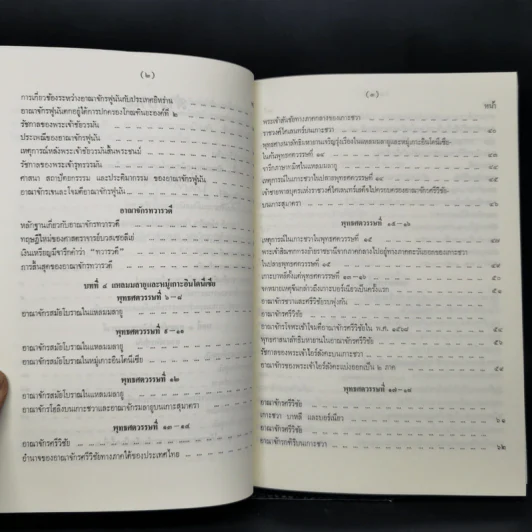 (๒)
การเกี่ยวข้องระหว่างอาณาจักรฟูนันกับประเทศอิหร่าน
อาณาจักรฟูนันตกอยู่ใต้การปกครองโกณฑินยะองค์ที่ ๒
รัชกาลของพระเจ้าชัยวรมัน
ประเพณีของอาณาจักรฟูนัน
เหตุการณ์หลังพระเจ้าชัยวรมันสิ้นพระชนม์
รัชกาลของพระเจ้ารุทรวรมัน
ศาสนา สถาปัตยกรรม และประติมากรรม ของอาณาจักรฟูนัน
อาณาจักรเจนละโจมตีอาณาจักรฟูนัน
อาณาจักรทวารวดี
หลักฐานเกี่ยวกับอาณาจักรทวารวดี
ทฤษฎีใหม่ของศาสตราจารย์บวสเซอลิเย่
เงินเหรียญมีจารึกคำว่า "ทวารวดี"
การสิ้นสุดของอาณาจักรทวารวดี
บทที่ ๔ แหลมมลายูและหมู่เกาะอินโดนีเซีย
พุทธศตวรรษที่ ๖–๘
อาณาจักรสมัยโบราณในแหลมมลายู
พุทธศตวรรษที่ ๙–๑๑
อาณาจักรสมัยโบราณในแหลมมลายู
อาณาจักรสมัยโบราณในหมู่เกาะอินโดนีเซีย
พุทธศตวรรษที่ ๑๒
อาณาจักรสมัยโบราณในแหลมมลายู
อาณาจักรโฮลิงบนเกาะชวาและอาณาจักรมลายูบนเกาะสุมาตรา
พุทธศตวรรษที่ ๑๓–๑๔
อาณาจักรศรีวิชัย
อำนาจของอาณาจักรศรีวิชัยทางภาคใต้ของประเทศไทย
(๓)
หน้า
พระเจ้าสัญชัยทางภาคกลางของเกาะชวา
ราชวงศ์ไศเลนทร์บนเกาะชวา
พุทธศาสนาลัทธิมหายานเจริญรุ่งเรืองในแหลมมลายูและหมู่เกาะอินโดนีเซีย
ในต้นพุทธศตวรรษที่ ๑๔
จารึกภาษาทมิฬในแหลมมลายู
เหตุการณ์ในเกาะชวาในปลายพุทธศตวรรษที่ ๑๔
เจ้าชายพาลบุตรแห่งราชวงศ์ไศเลนทร์เสด็จไปครอบครองอาณาจักรศรีวิชัย
บนเกาะสุมาตรา
พุทธศตวรรษที่ ๑๕–๑๖
เหตุการณ์ในเกาะชวาในพุทธศตวรรษที่ ๑๕
พระเจ้าสิณฑกทรงย้ายราชธานีจากภาคกลางไปอยู่ทางภาคตะวันออกของเกาะชวา
ในปลายพุทธศตวรรษที่ ๑๕
เกาะบาหลีตั้งแต่พุทธศตวรรษที่ ๑๓–๑๖
จดหมายเหตุจีนกล่าวถึงเกาะบอร์เนียวเป็นครั้งแรก
อาณาจักรชวาและศรีวิชัยรบพุ่งกัน
อาณาจักรศรีวิชัย
อาณาจักรโจฬะเข้าโจมตีอาณาจักรศรีวิชัย ใน พ.ศ. ๑๕๖๘
พุทธศาสนาลัทธิมหายานในอาณาจักรศรีวิชัย
รัชกาลของพระเจ้าไอร์ลังคะบนเกาะชวา
อาณาจักรของพระเจ้าไอร์ลังคะแบ่งออกเป็น ๒ ภาค
พุทธศตวรรษที่ ๑๗–๑๘
อาณาจักรศรีวิชัย
เกาะชวา บาหลี และบอร์เนียว ๖๑
อาณาจักรศรีวิชัย
อาณาจักรกดิรีบนเกาะชวา ๖๒